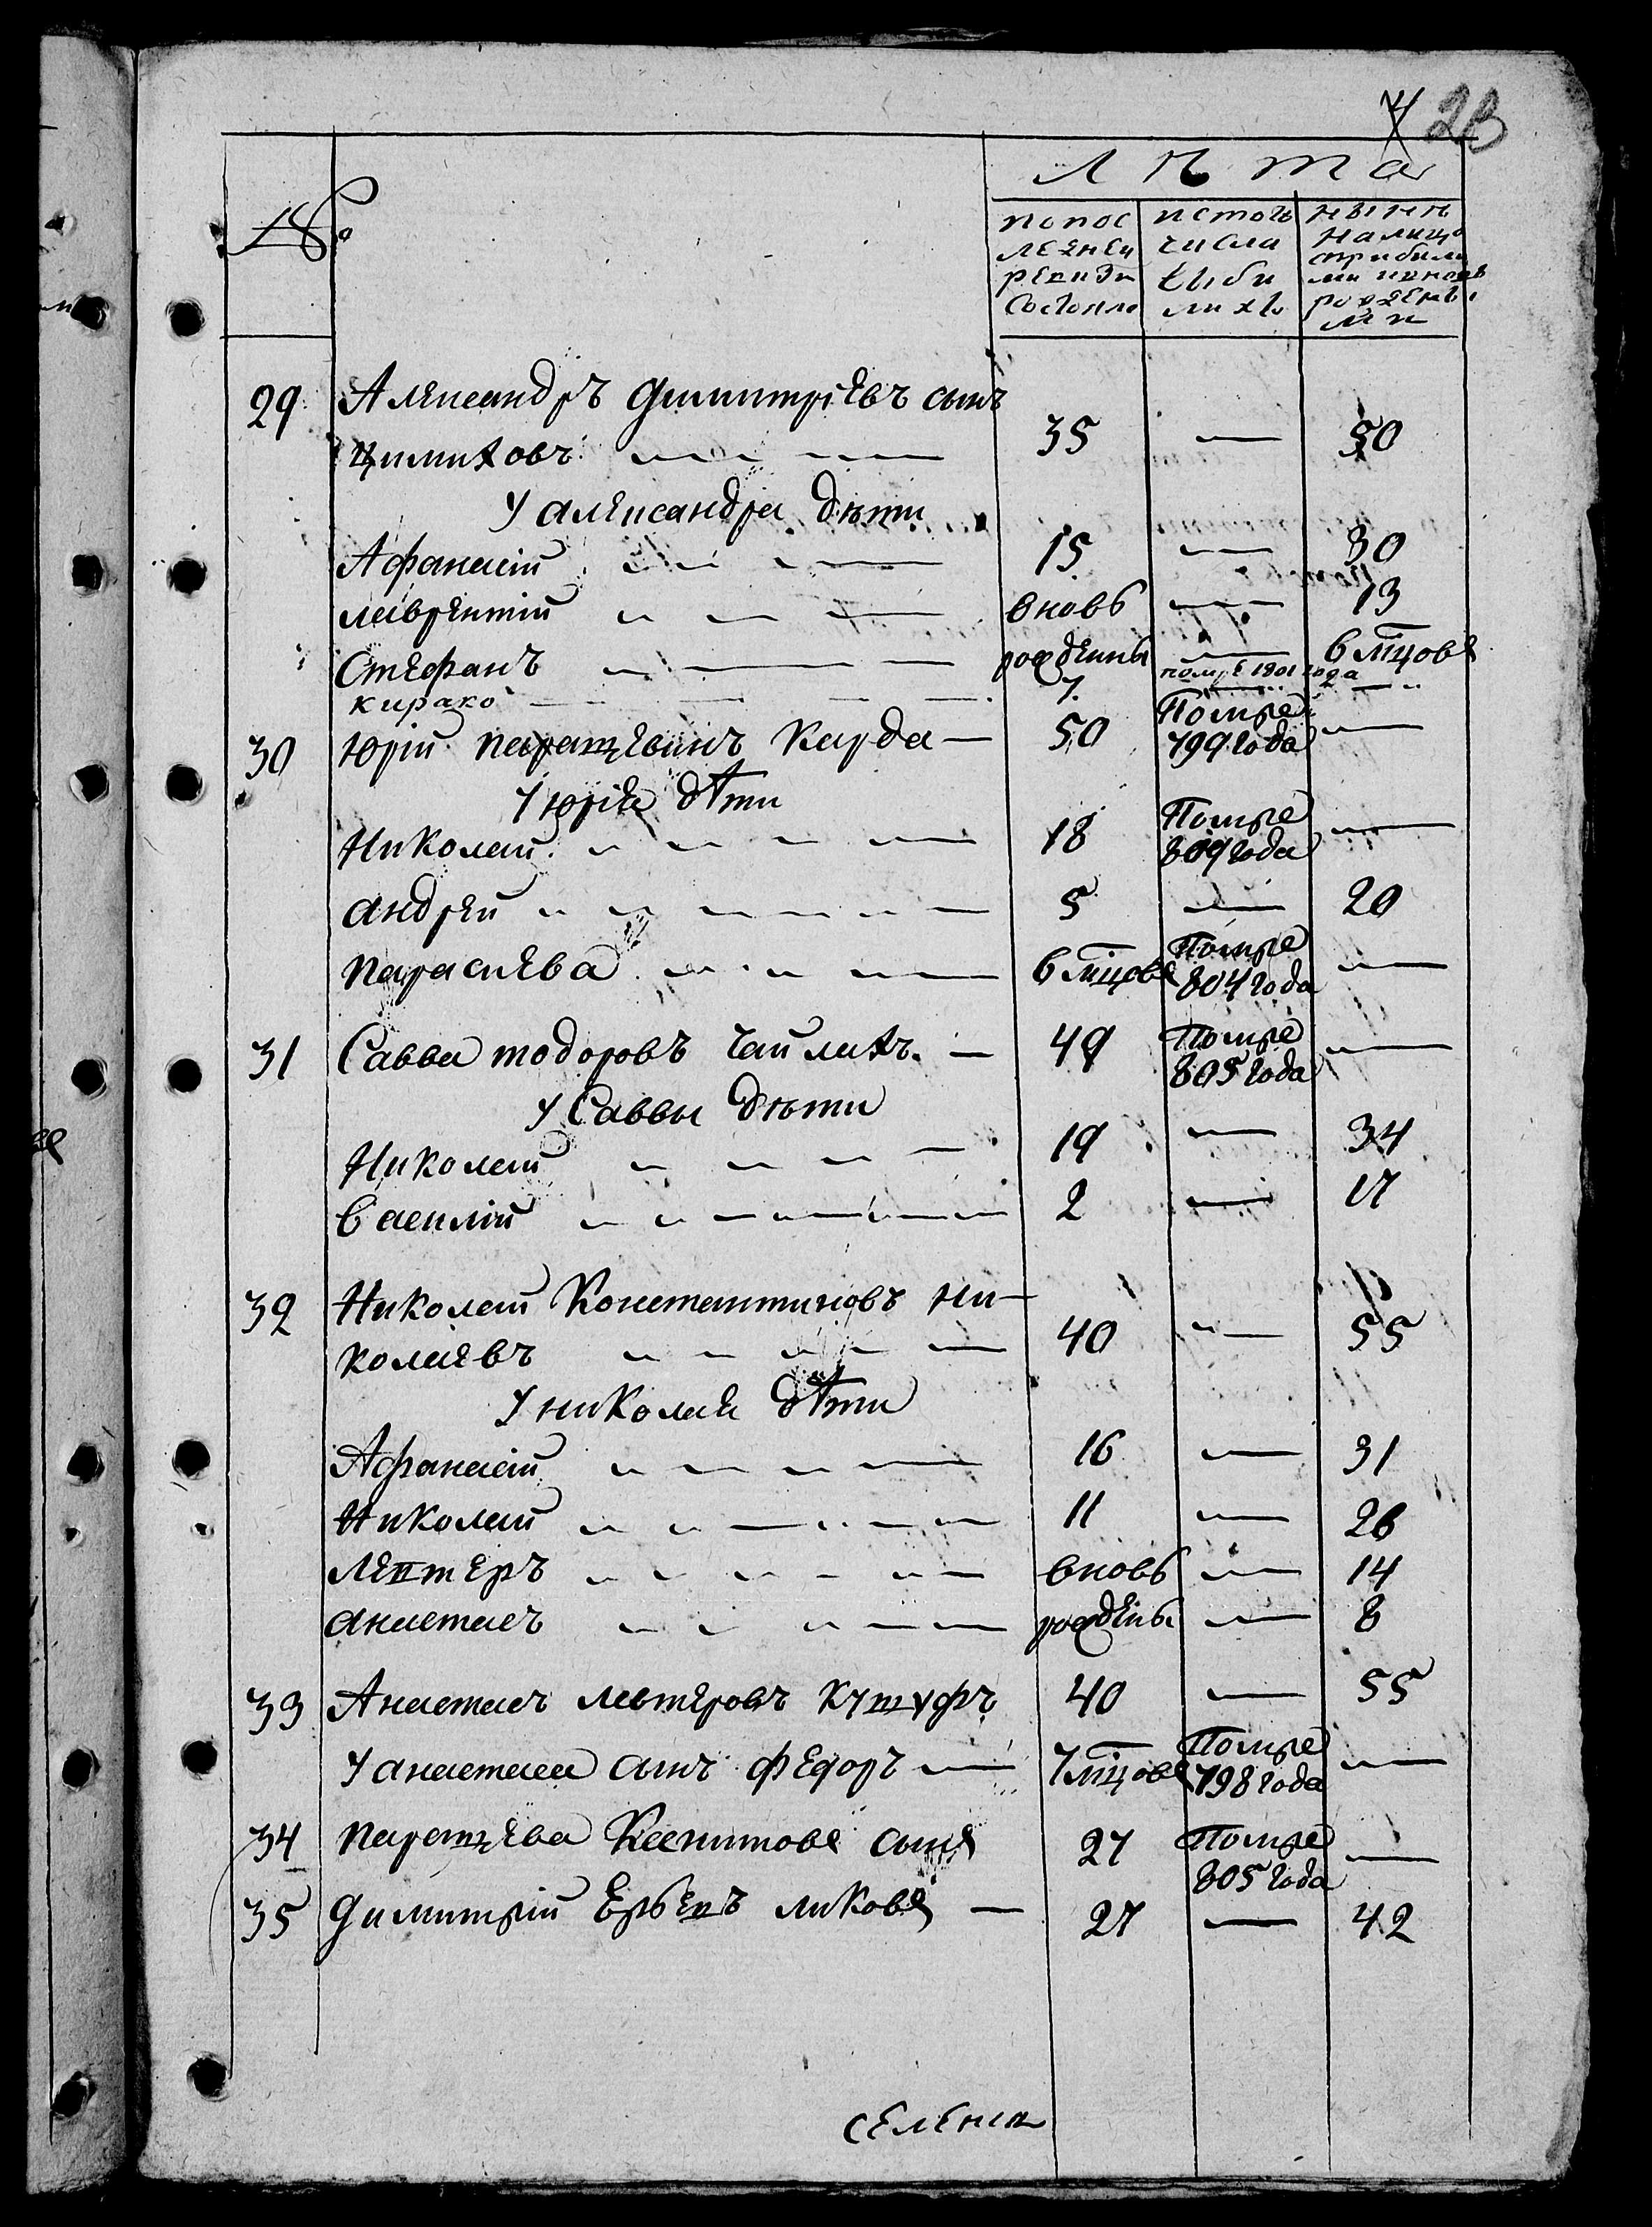 23
Лѣта
№
попос
ледней
ревизи
Состояло
истого
числа
выби
лихъ
нынѣ
налицо
сприбылы
ми иновь
рожденны
ми
29 Александръ Димитріевъ сынъ
Цимиховъ 35 — 50
У александра дѣти
Афанасій 15 — 30
лаврентій вновь — 13
Стефанъ рожденны — 6 мцовъ
Кирако 7. помре 1801 года
30 Юрій параскевинъ Карда — 50 Помре 799 года —
У юрія дѣти
Николай 18 Помре 809 года —
андрей 5 — 20
параскева 6 мцовъ Помре 804 года —
31 Савва тодоровъ Чайлахъ — 49 Помре 805 года —
У Саввы дѣти
Николай 19 — 34
Василій 2 — 17
32 Николай Константиновъ Ни-
колаевъ 40 — 55
У николая дѣти
Афанасій 16 — 31
Николай 11 — 26
Лефтеръ вновь — 14
анастасъ рождены — 8
33 Анастасъ лефтеровъ 40 — 55
У анастаса сынъ федоръ — 7 мцовъ Помре 798 года —
34 параскева сынъ 27 Помре 805 года —
35 Димитрій — 27 — 42
селенія